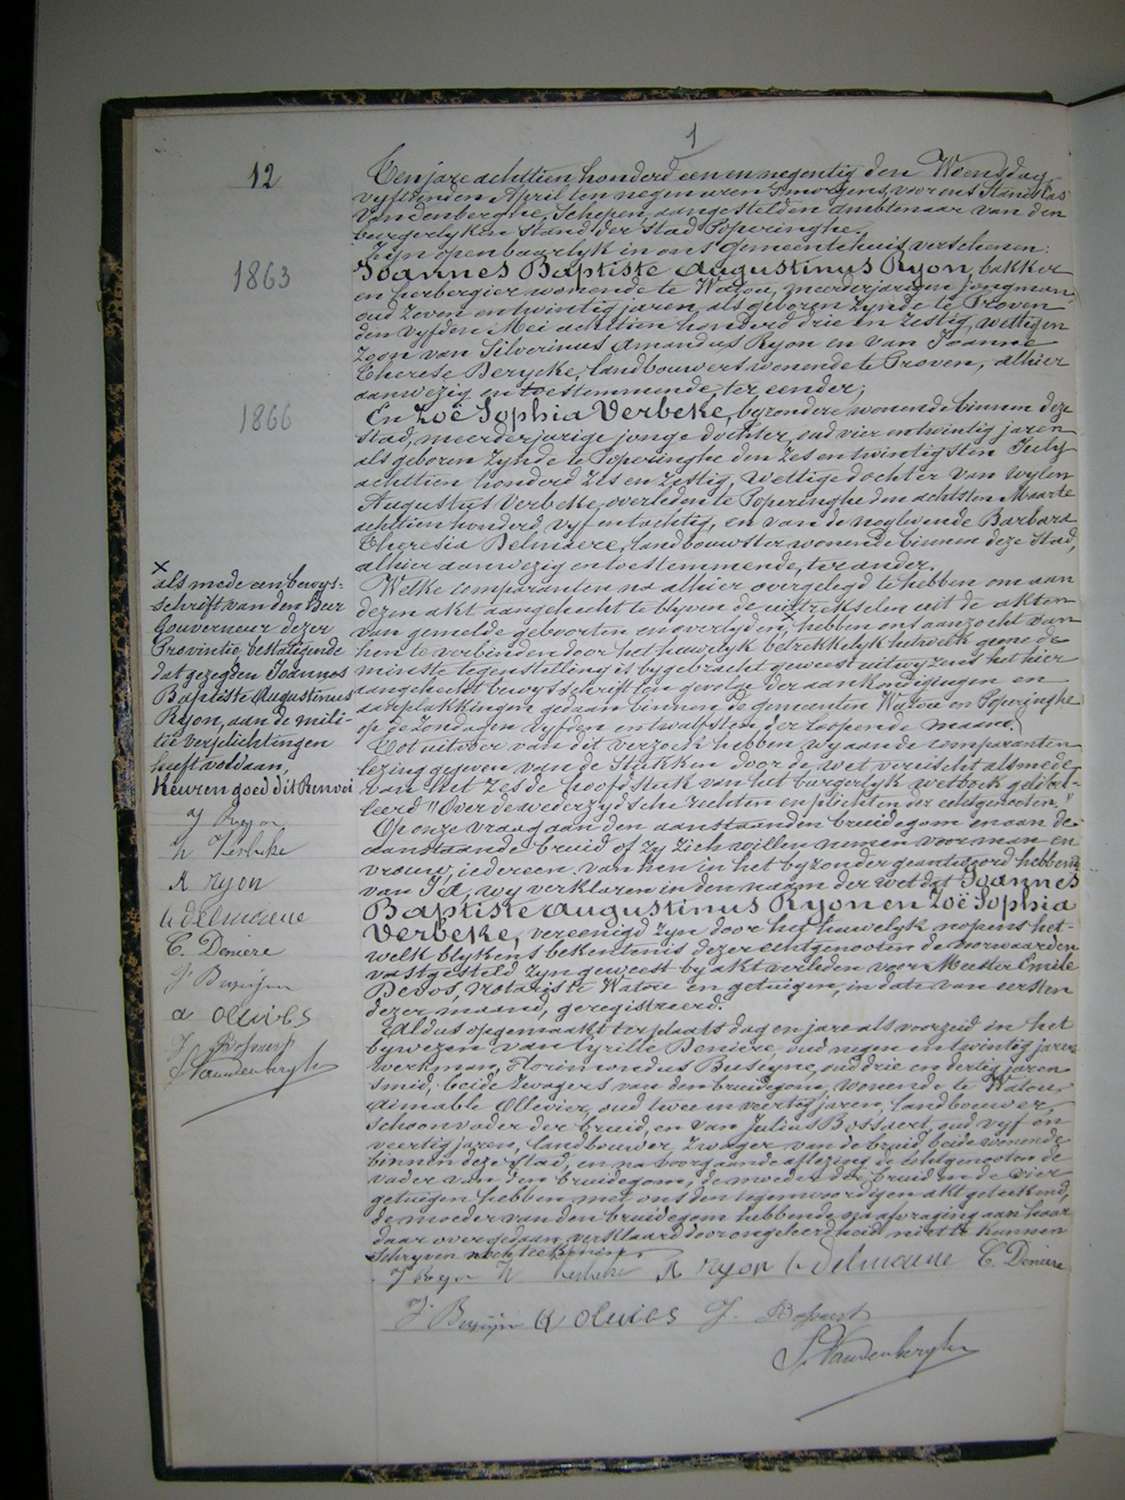 1
12
Ten jare achttien honderd een en negentig den Woensdag
vyftienden April ten negen uren s'morgens, voor ons Stanislas
Vandenberghe, Schepen, aangestelden ambtenaar van den
burgerlyken stand der stad Poperinghe.
Zyn openbaarlyk in ons Gemeentehuis verschenen:
1863
Joannes Baptiste Augustinus Ryon, bakker
en herbergier wonende te Watou, meerderjarigen jongman,
oud zeven en twintig jaren, als geboren zynde te Proven
den vyfden Mei achttien honderd drie en zestig, wettigen
zoon van Silverinus Amandus Ryon en van Joanne
Therese Derycke, landbouwers wonende te Proven, alhier
aanwezig en toestemmende, ter eender;
1866
En Zoë Sophia Verbeke, byzondere wonende binnen deze
stad, meerderjarige jonge dochter, oud vier en twintig jaren
als geboren zynde te Poperinghe den zes en twintigsten July
achttien honderd zes en zestig, wettige dochter van wylen
Augustus Verbeke, overleden te Poperinghe den achtsten Maarte
achttien honderd vyf en tachtig, en van de noglevende Barbara
Theresia Delmaere, landbouwster wonende binnen deze stad,
alhier aanwezig en toestemmende, ter ander.
Welke comparanten na alhier overgelegd te hebben om aan
dezen akt aangehecht te blyven de uittrekselen uit de akten
van gemelde geboorten en overlyden, x hebben ons aanzocht van
hen te verbinden door het huwelyk betrekkelyk hetwelk geene de
minste tegenstelling is bygebracht geweest uitwyzens het hier
aangehecht bewysschrift ten gevolge der aankondigingen en
aanplakkingen gedaan binnen de gemeenten Watou en Poperinghe
op de zondagen vyfden en twalfsten der loopende maand
Tot uitover van dit verzoek hebben wy aan de comparanten
lezing gegeven van de stukken door de wet vereischt alsmede
van het zesde hoofdstuk van het burgerlyk wetboek getitel-
leerd "Over de wederzydsche rechten en plichten der echtgenooten,"
Op onze vraag aan den aanstaanden bruidegom en aan de
aanstaande bruid of zy zich willen nemen voor man en
vrouw, iedereen van hen in het byzonder geantwoord hebbende
van Ja, wy verklaren in den naam der wet dat Joannes
Baptiste Augustinus Ryon en Zoë Sophia
Verbeke, vereenigd zyn door het huwelyk nopens het-
welk blykens bekentenis dezer echtgenooten de voorwaarden
vastgesteld zyn geweest by akt verleden voor Meester Emile
Devos, notaris te Watou en getuigen, in date van eersten
dezer maand, geregistreerd.
Aldus opgemaakt ter plaats dag en jare als voorzeid in het
bywezen van Cyrille Deniere, oud negen en twintig jaren
werkman, Florimondus Buseyne, oud drie en dertig jaren
smid, beide zwagers van den bruidegom, wonende te Watou,
Aimable Ollevier, oud twee en veertig jaren, landbouwer,
schoonvader der bruid, en van Julius Bossaert, oud vyf en
veertig jaren, landbouwer, zwager van de bruid beide wonende
binnen deze stad, en na voorgaande aflezing de echtgenooten de
vader van den bruidegom, de moeder der bruid en de vier
getuigen hebben met ons den tegenwoordigen akt geteekend,
de moeder van den bruidegom hebbende na afvraging aan haar
daar over gedaan verklaard door ongeleerdheid niet te kunnen
schryven noch teekenen.
J Ryon Z Verbeke A ryon b delmaere C. Deniere
F. Buseyne a olivies J. Bossaert
S. Vandenberghe
x
als mede een bewys-
schrift van den Heer
Gouverneur dezer
Provintie, bestatigende
dat gezegden Joannes
Baptiste Augustinus
Ryon, aan de mili-
tie verplichtingen
heeft voldaan,
Keuren goed dit Renvoi
J Ryon
Z Verbeke
A ryon
b delmaere
C. Deniere
F Buseyne
a olivies
J Bossaert
S Vandenberghe